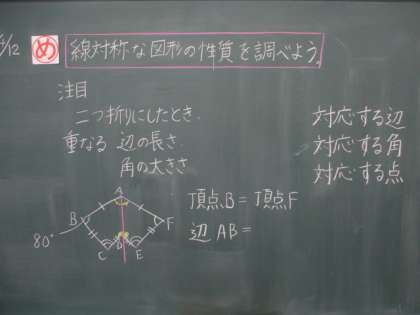 5/12 め 線対称な図形の性質を調べよう。
注目
二つ折りにしたとき.
重なる 辺の長さ.
角の大きさ
対応する辺
対応する角
対応する点
頂点B = 頂点F
辺AB =
A
B
F
80°
C
D
E